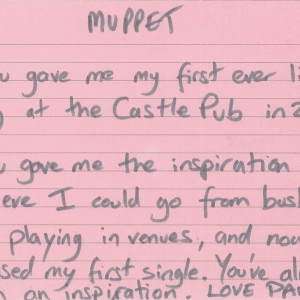 MUPPET
u gave me my first ever li
at the Castle Pub in 2
u gave me the inspiration
eve I could go from busk
playing in venues, and now
sed my first single. You've al
an inspiration. LOVE PA